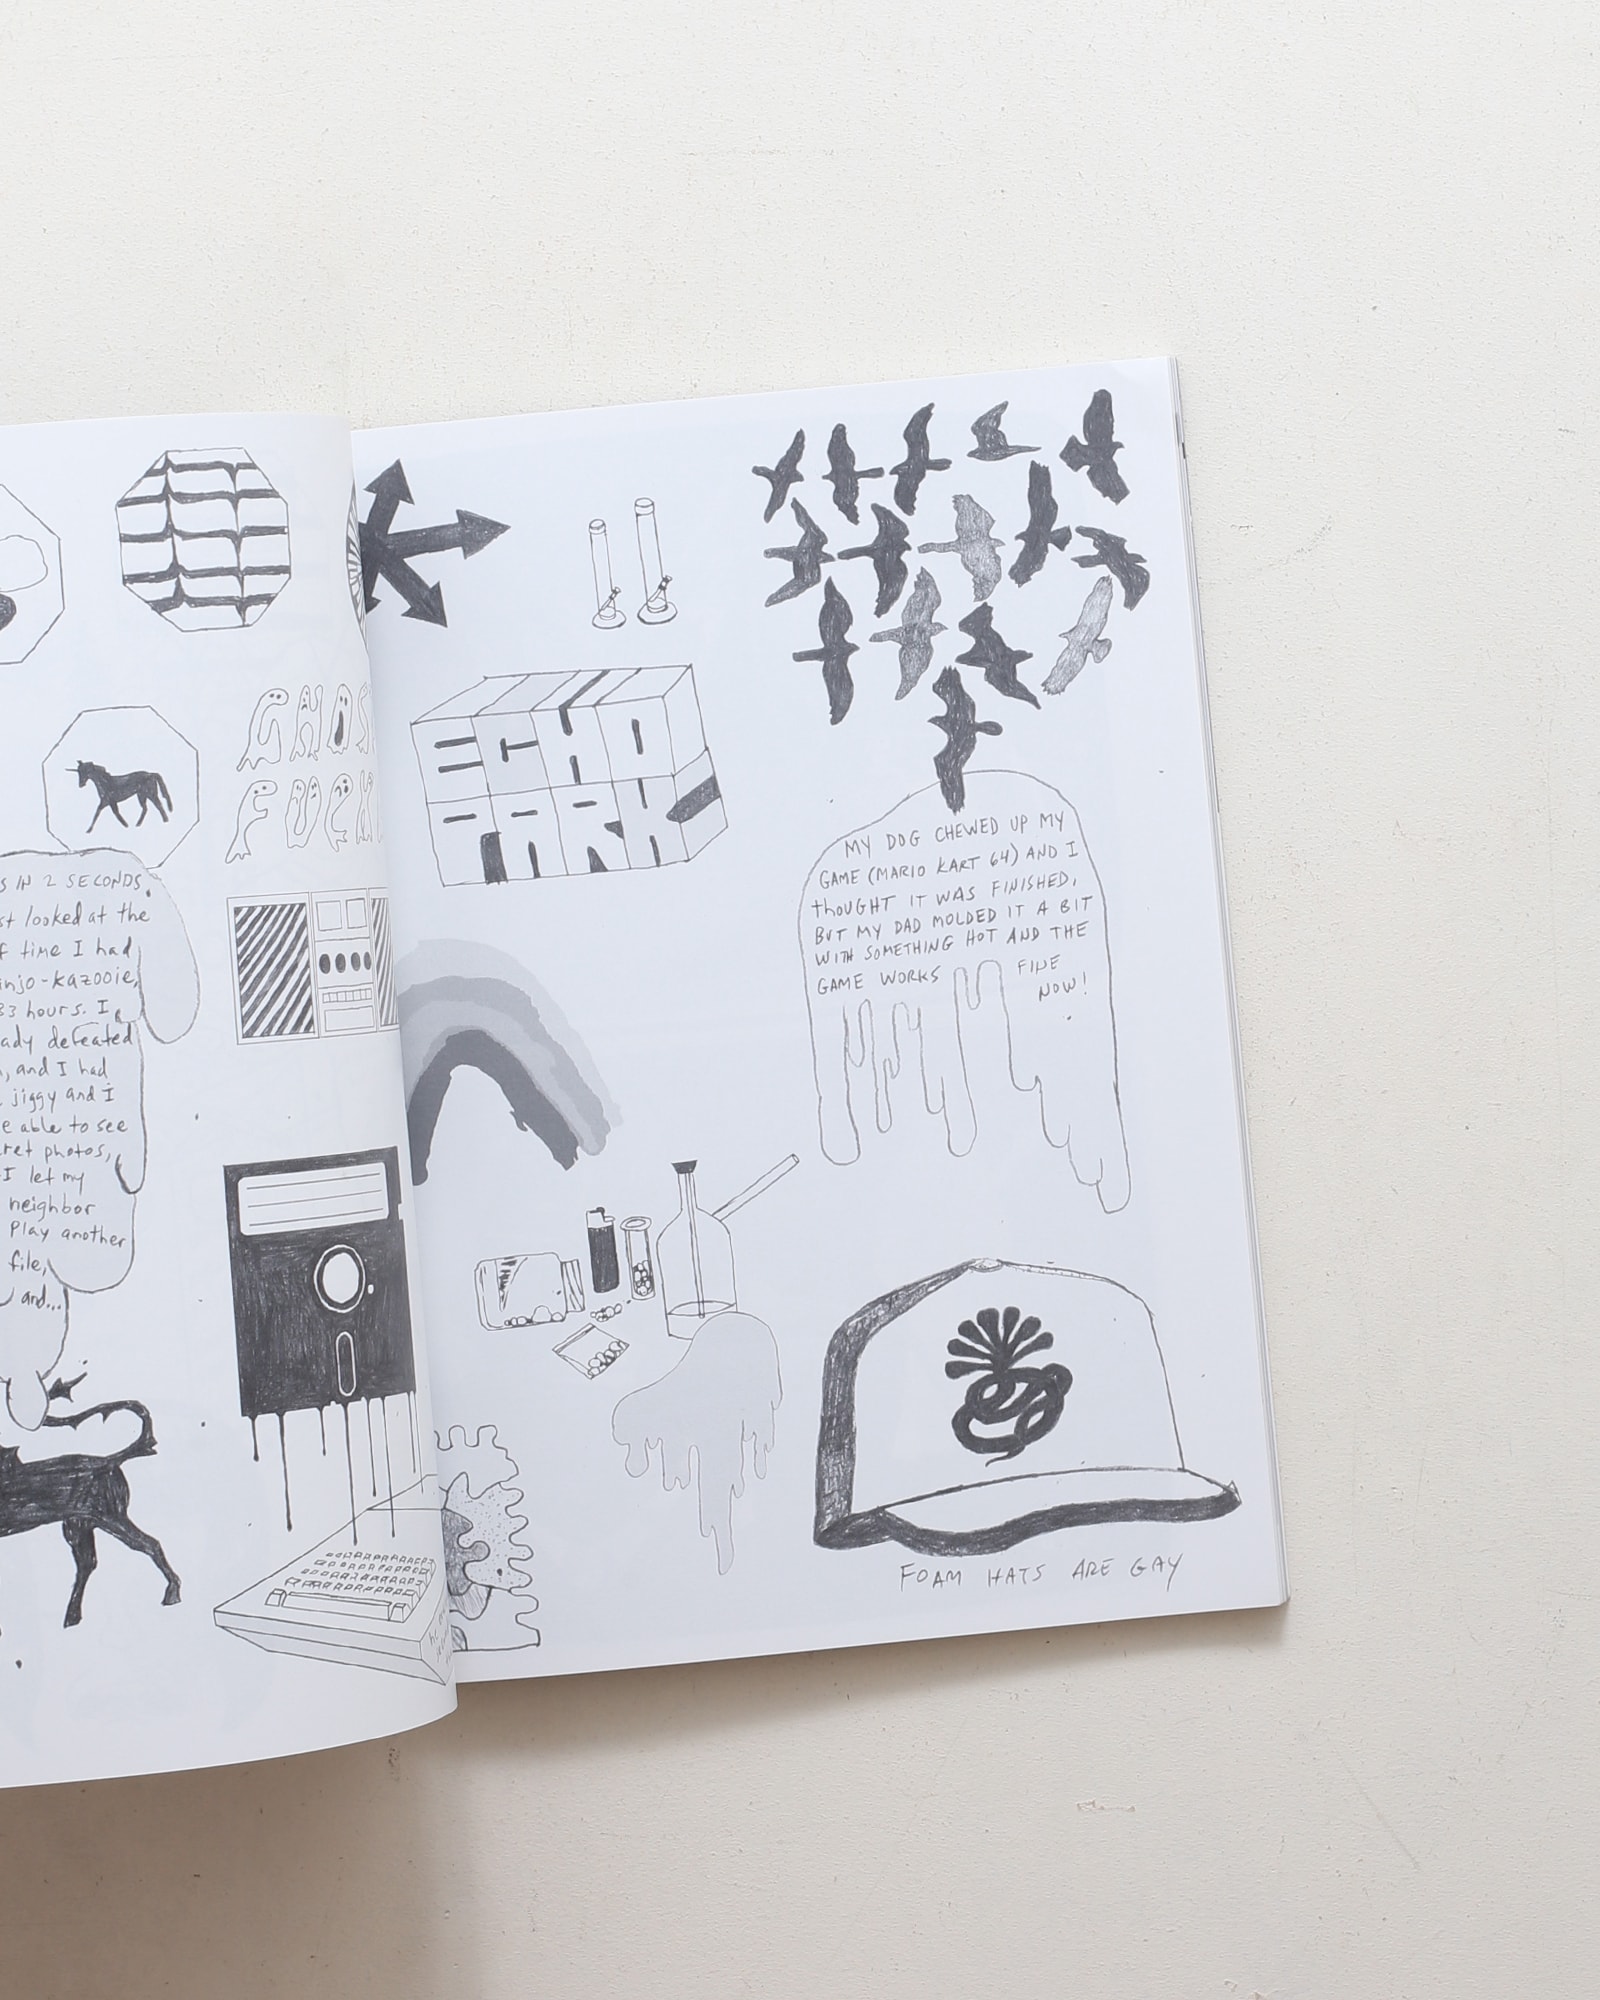 GHOS
FUCK
S IN 2 SECONDS.
st looked at the
f time I had
njo-kazooie,
33 hours. I
ady defeated
, and I had
jiggy and I
e able to see
ret photos,
I let my
neighbor
Play another
file,
and...
ECHO
PARK
MY DOG CHEWED UP MY
GAME (MARIO KART 64) AND I
thOUGHT IT WAS FINISHED,
BUT MY DAD MOLDED IT A BIT
WITH SOMETHING HOT AND THE
GAME WORKS FINE
NOW!
FOAM HATS ARE GAY